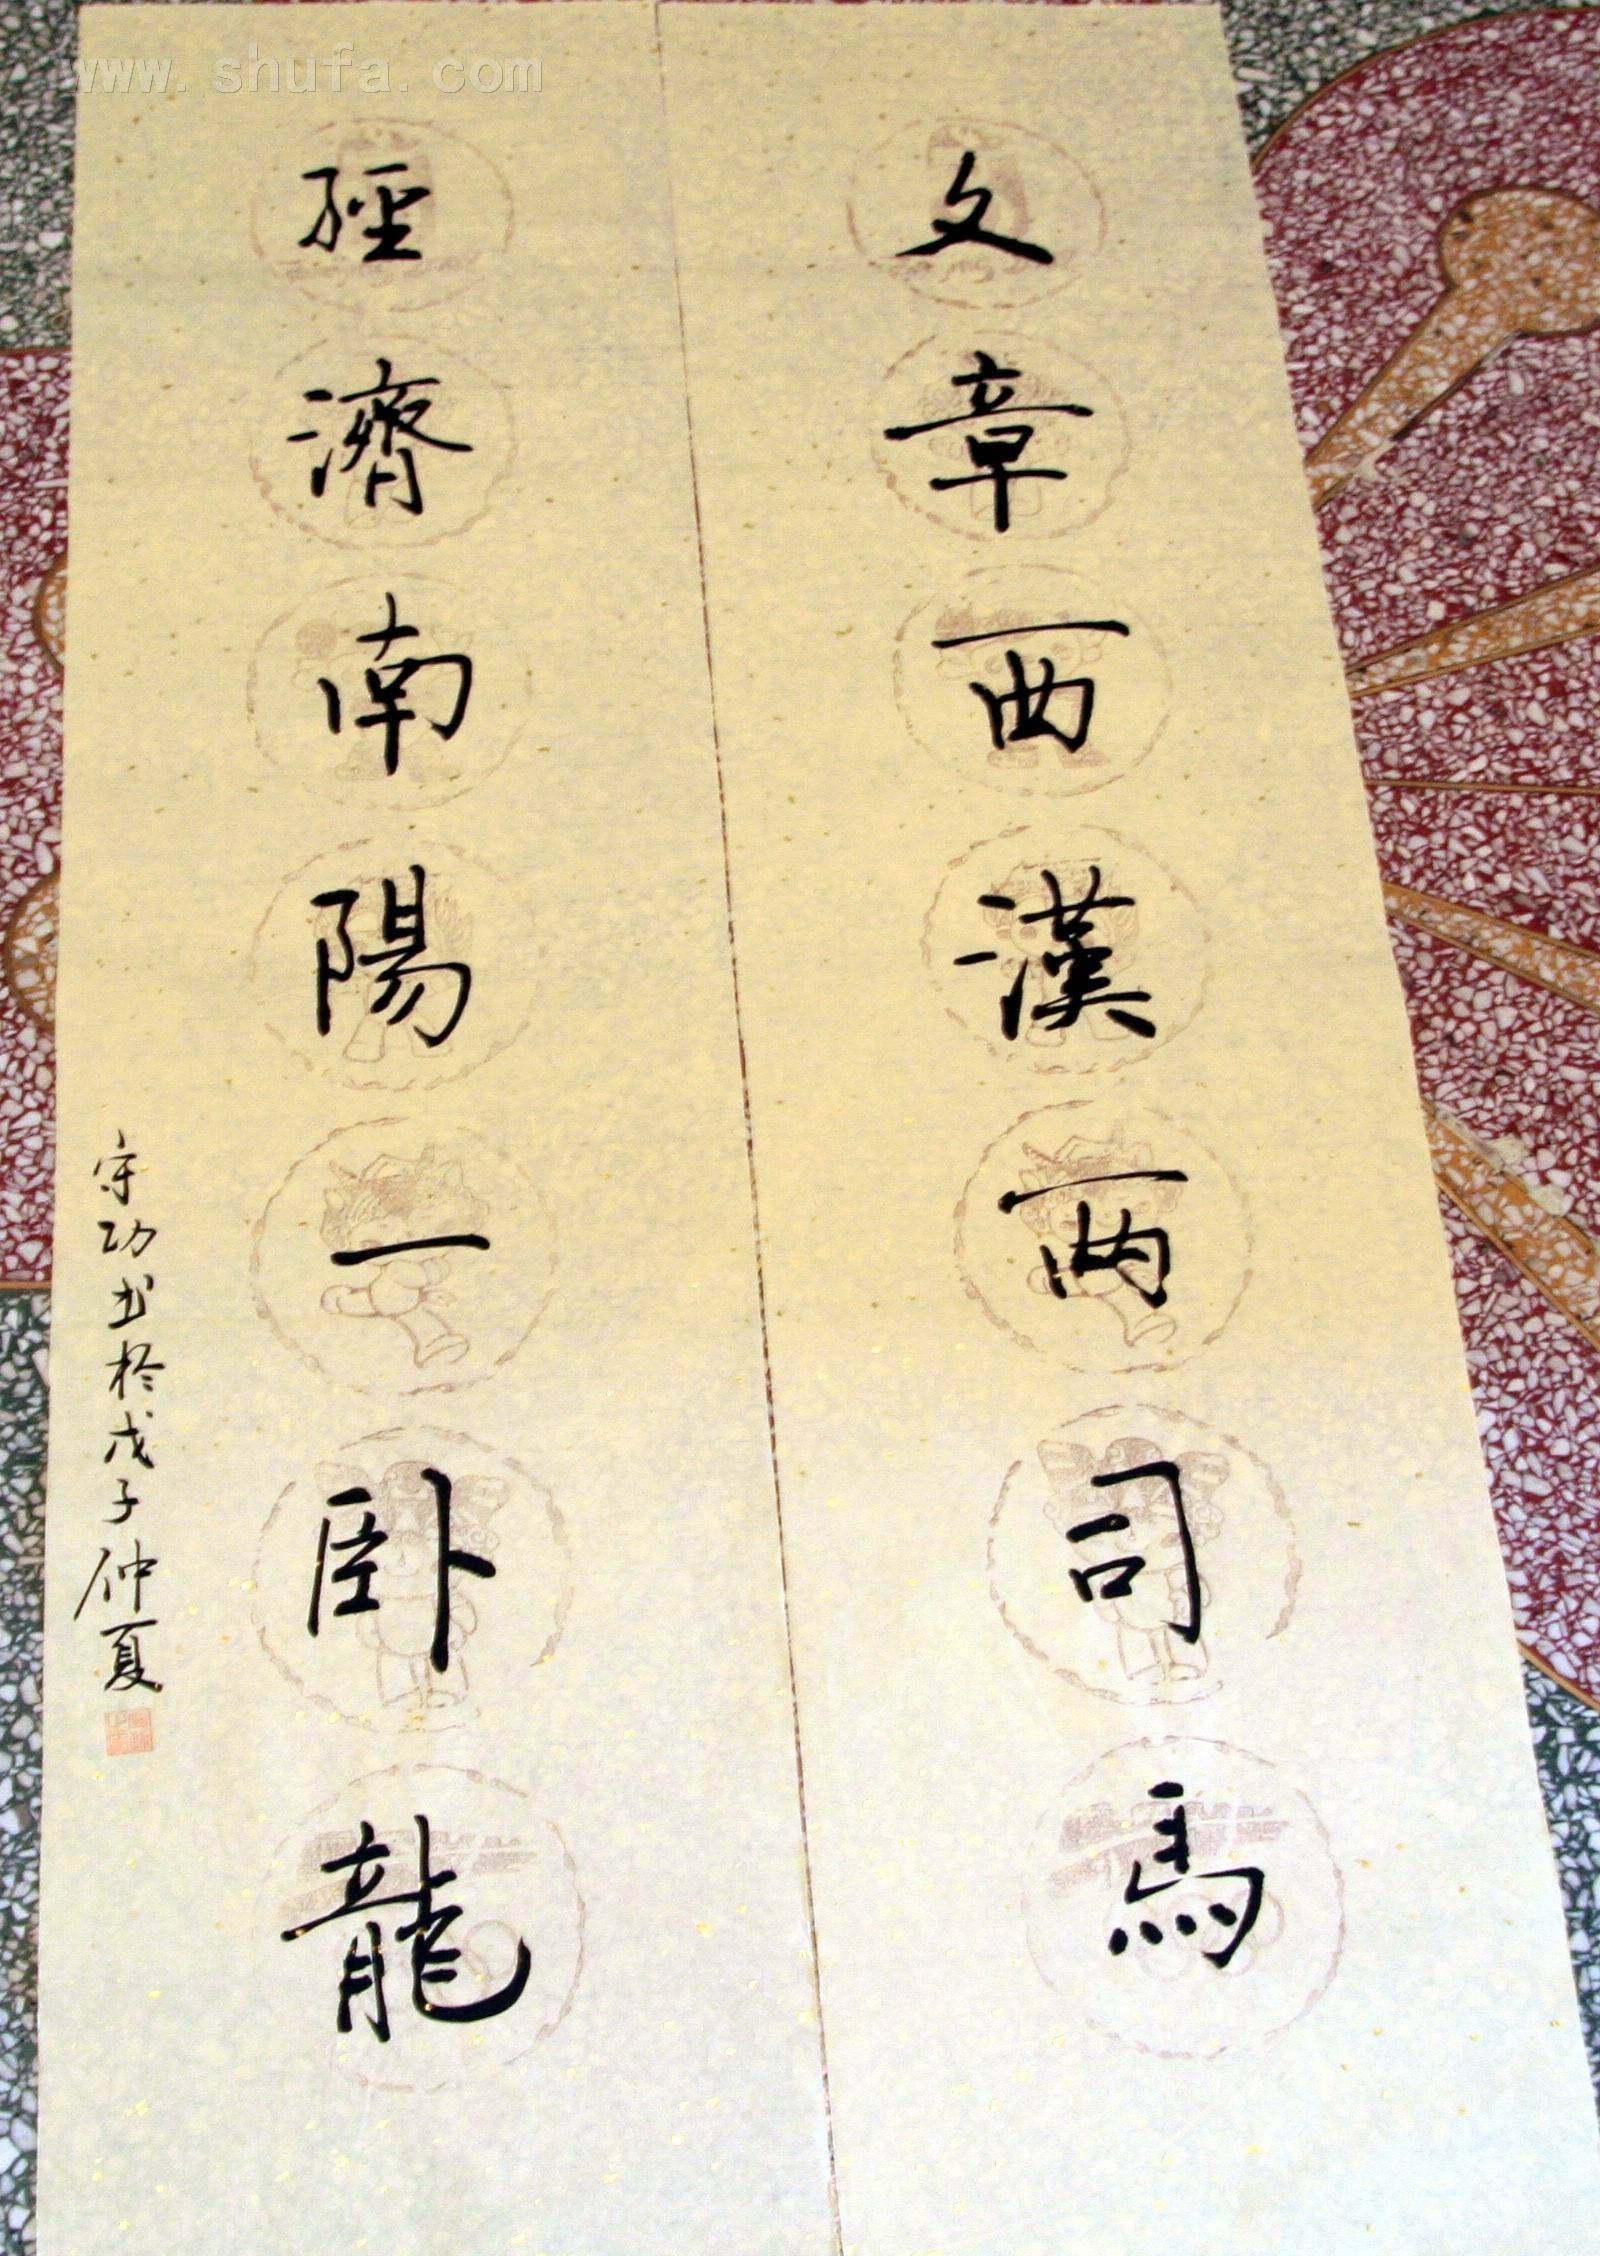 www.shufa.com
文章西漢兩司馬
經濟南陽一臥龍
宗功书於戊子仲夏